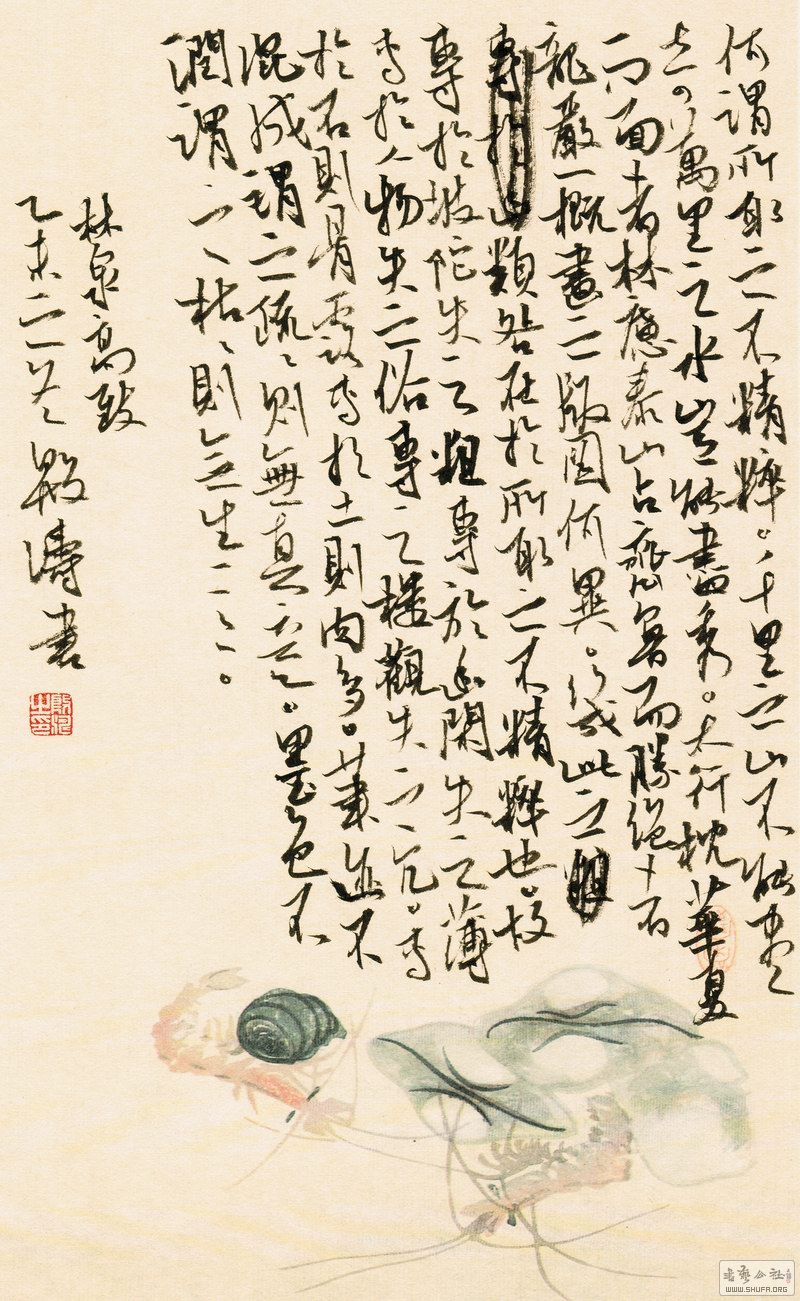 何謂所取之不精粹。千里之山不能盡
奇萬里之水豈能盡秀。太行枕華夏
而面者林慮泰山占齊魯而勝絕者
龍巖一概畫之版圖何異。凡此之
類咎在於所取之不精粹也。故
專於坡陀失之粗專於幽閑失之薄
專於人物失之俗專之樓觀失之冗。專
於石則骨露專於土則肉多。筆迹不
混成謂之疏〻則無真意。墨色不
潤謂之枯〻則無生意。
林泉高致
乙未之冬殷濤書
書藝公社
WWW.SHUFA.ORG